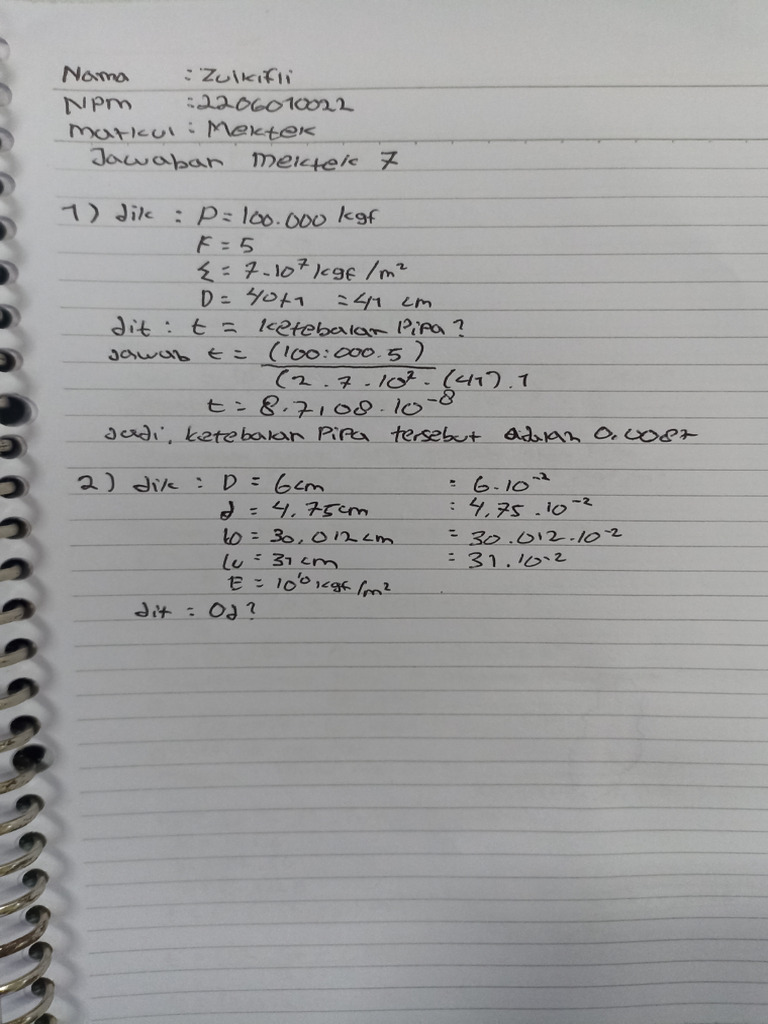 Nama : Zulkifli
NPM : 2206010022
Matkul : Mektek
Jawaban Mektek 7
1) dik : P = 100.000 kgf
F = 5
Σ = 7.10⁷ kgf/m²
D = 40+1 = 41 cm
dit : t = ketebalan Pipa?
Jawab t = (100.000.5)
(2.7.10².(41).1
t = 8.7108.10⁻⁸
Jadi, ketebalan Pipa tersebut adalah 0.0087
2) dik : D = 6cm = 6.10⁻²
d = 4,75cm = 4,75.10⁻²
lo = 30,012 cm = 30.012.10⁻²
lu = 31 cm = 31.10⁻²
E = 10¹⁰ kgf/m²
dit : Od?